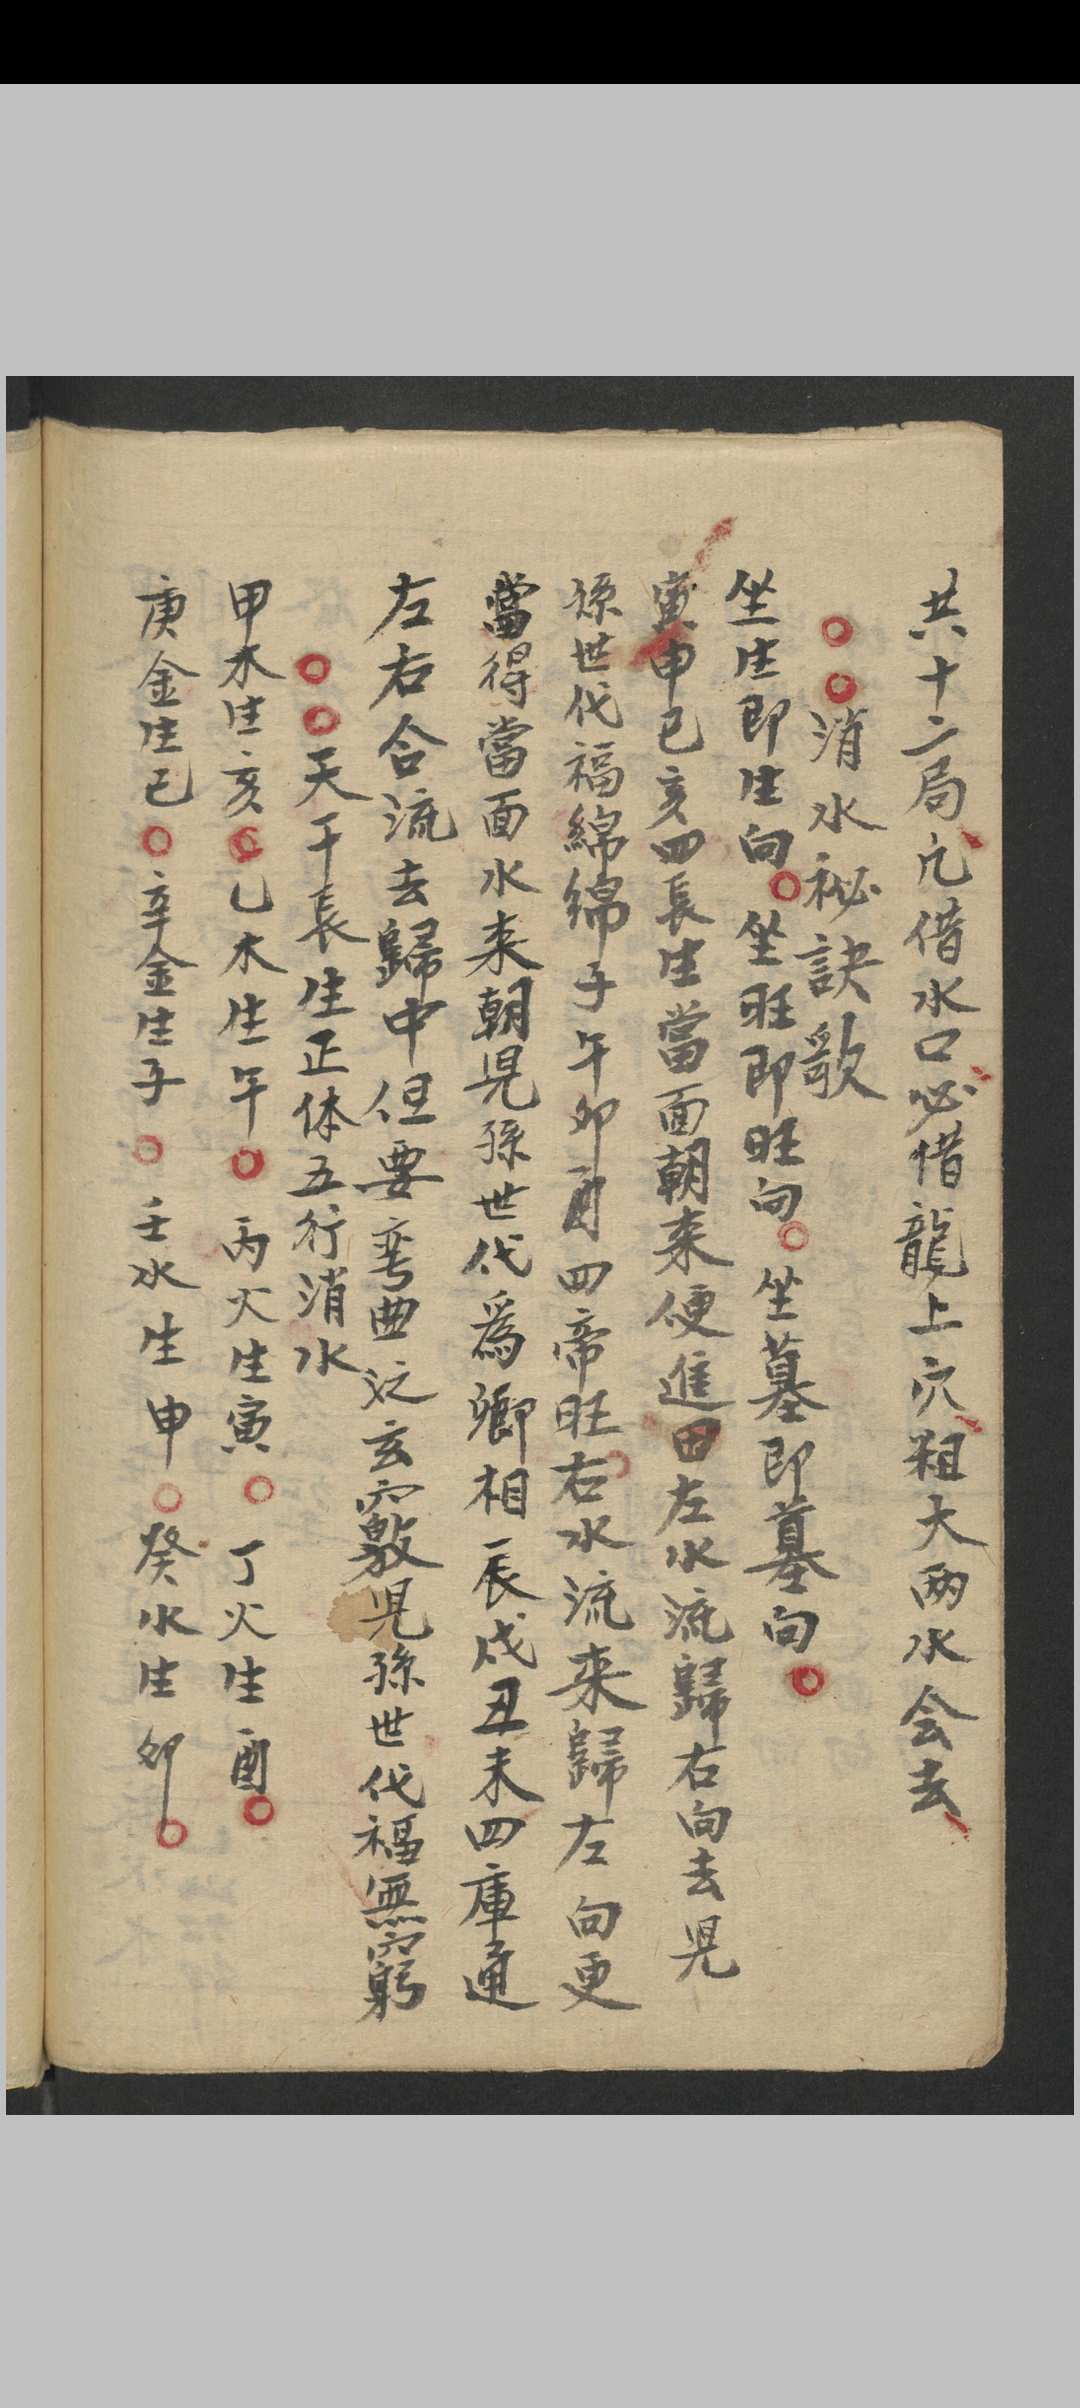 共十二局凢借水口必借龍上穴粗大两水会去
消水祕訣歌
坐生即生向坐旺即旺向坐墓即墓向
寅申巳亥四長生當面朝来便進田左水流歸右向去児
孫世代福綿綿子午卯酉四帝旺右水流来歸左向更
當得當面水来朝児孫世代爲卿相辰戍丑未四庫通
左右合流去歸中但要弯曲之玄竅児孫世代福無窮
天干長生正体五行消水
甲木生亥乙木生午丙火生寅丁火生酉
庚金生巳辛金生子壬水生申癸水生卯